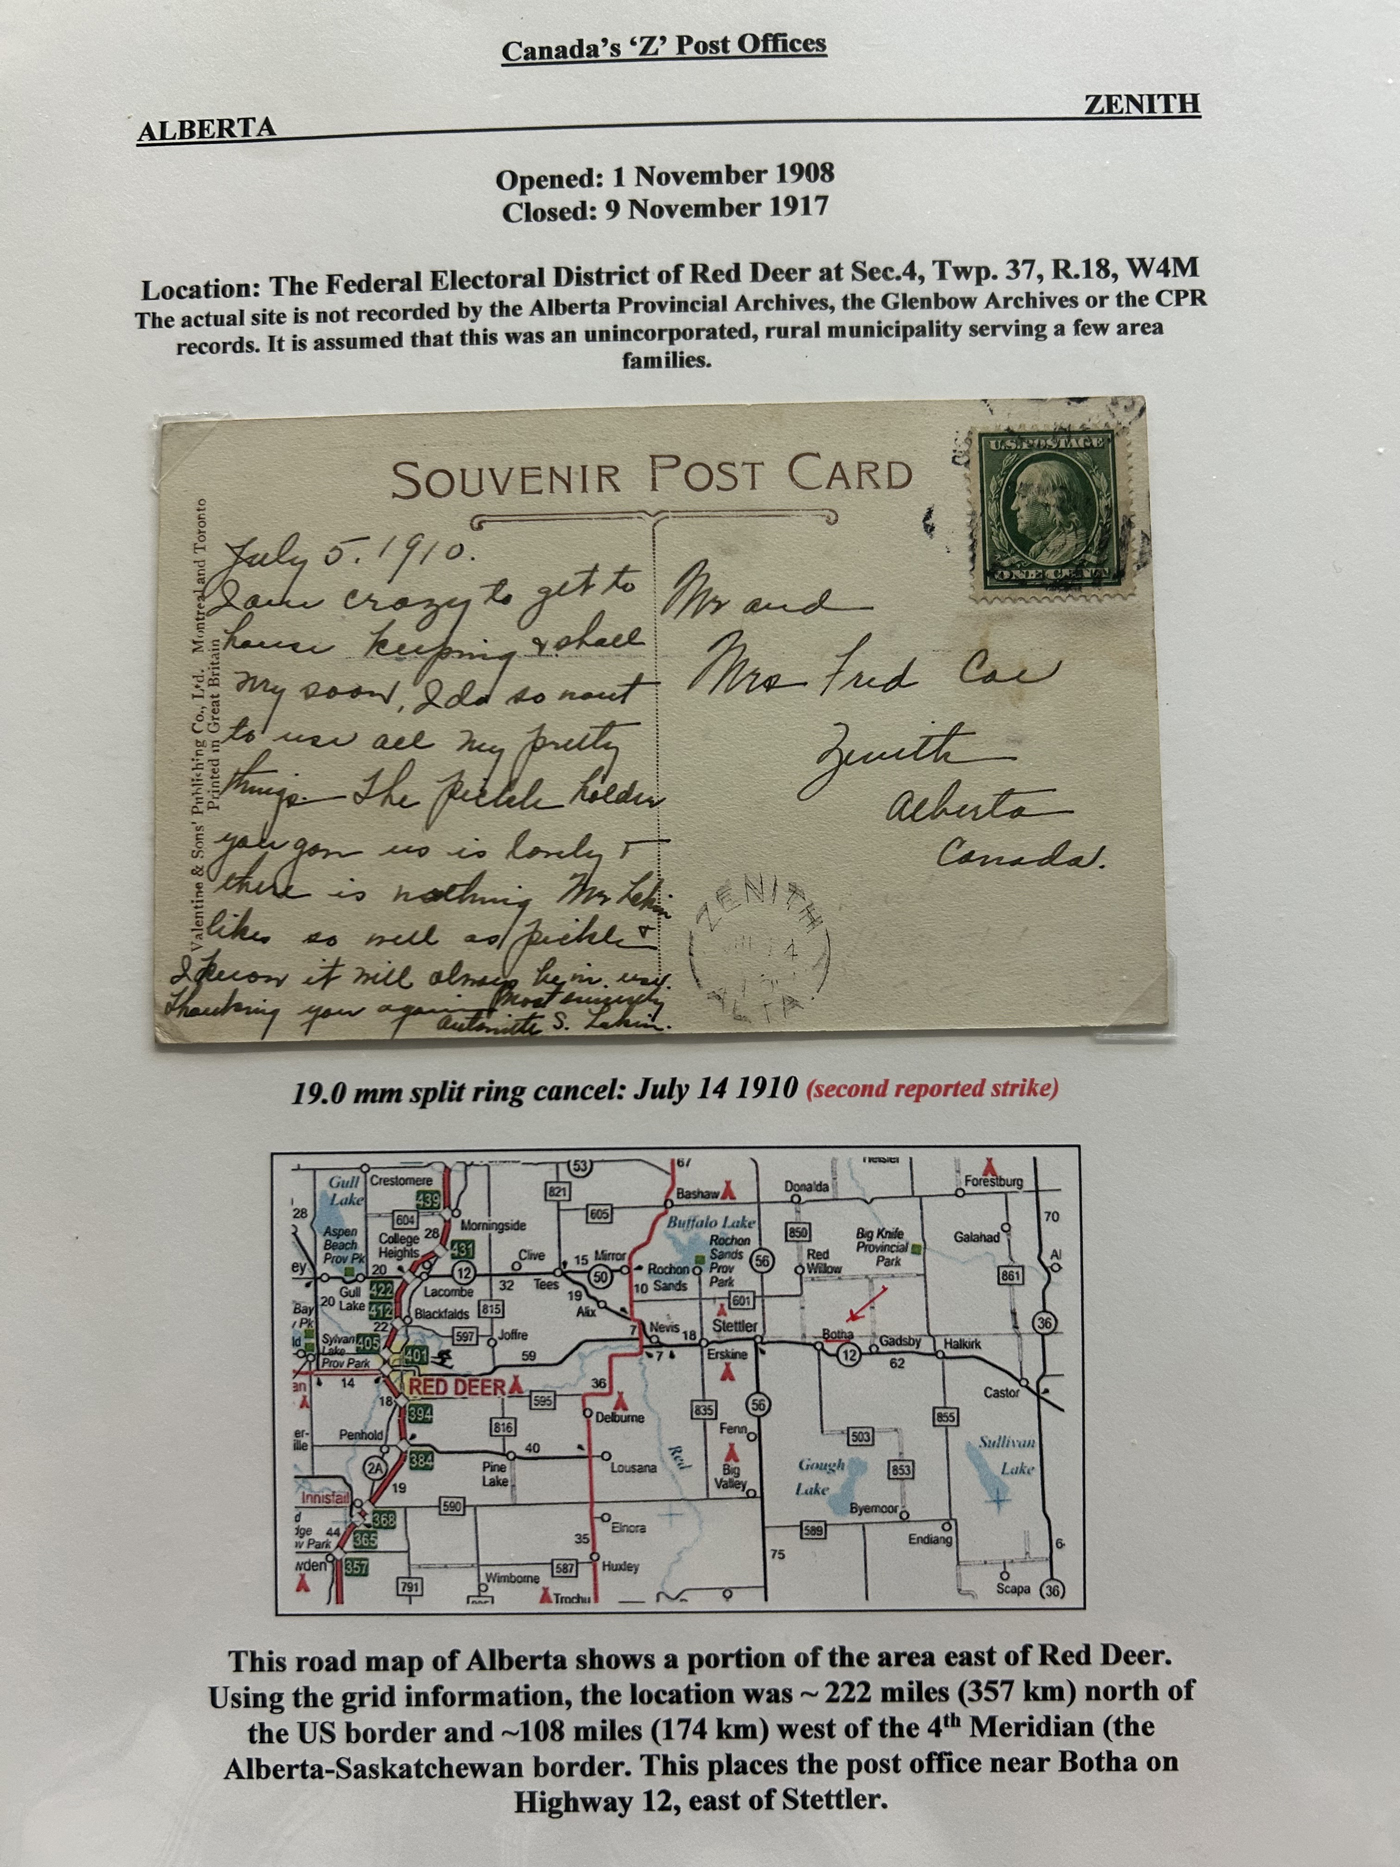 Canada's 'Z' Post Offices
ALBERTA
ZENITH
Opened: 1 November 1908
Closed: 9 November 1917
Location: The Federal Electoral District of Red Deer at Sec.4, Twp. 37, R.18, W4M
The actual site is not recorded by the Alberta Provincial Archives, the Glenbow Archives or the CPR
records. It is assumed that this was an unincorporated, rural municipality serving a few area
families.
SOUVENIR POST CARD
U.S. POSTAGE
ONE CENT
Valentine & Sons' Publishing Co., Ltd. Montreal and Toronto
Printed in Great Britain
July 5. 1910.
I am crazy to get to
house keeping & shall
my soon, I do so want
to use all my pretty
things. The pickle holder
you gave us is lovely &
there is nothing Mr Lakin
likes so well as pickles &
I know it will always be in use.
Thanking you again Most sincerely
Antoinette S. Lakin.
Mr and
Mrs Fred Coe
Zenith
Alberta
Canada.
ZENITH
14
ALTA
19.0 mm split ring cancel: July 14 1910 (second reported strike)
53
67
Gull
Lake
Crestomere
439
821
Bashaw
Donalda
Forestburg
28
604
Morningside
605
Buffalo Lake
850
Big Knife
Provincial
Park
Galahad
70
Aspen
Beach
Prov Pk
College
Heights
28
431
Clive
15
Mirror
Rochon
Sands
Prov
Park
56
Red
Willow
861
20
12
32
Tees
50
Rochon
Sands
10
422
Gull
Lake
412
Lacombe
19
601
20
Blackfalds
815
Alix
36
Bay
22
597
Joffre
7
Nevis
18
Stettler
Botha
Gadsby
Halkirk
Sylvan
Lake
Prov Park
405
401
59
7
Erskine
12
62
14
RED DEER
36
Castor
18
595
394
Delburne
835
56
855
816
Fenn
503
Sullivan
Lake
Penhold
384
40
Red
Big
Valley
Gough
Lake
853
2A
Pine
Lake
Lousana
19
Innisfail
590
Byemoor
368
44
365
Elnora
589
Endiang
357
35
587
Huxley
75
6
791
Wimborne
Trochu
Scapa
36
This road map of Alberta shows a portion of the area east of Red Deer.
Using the grid information, the location was ~ 222 miles (357 km) north of
the US border and ~108 miles (174 km) west of the 4th Meridian (the
Alberta-Saskatchewan border. This places the post office near Botha on
Highway 12, east of Stettler.